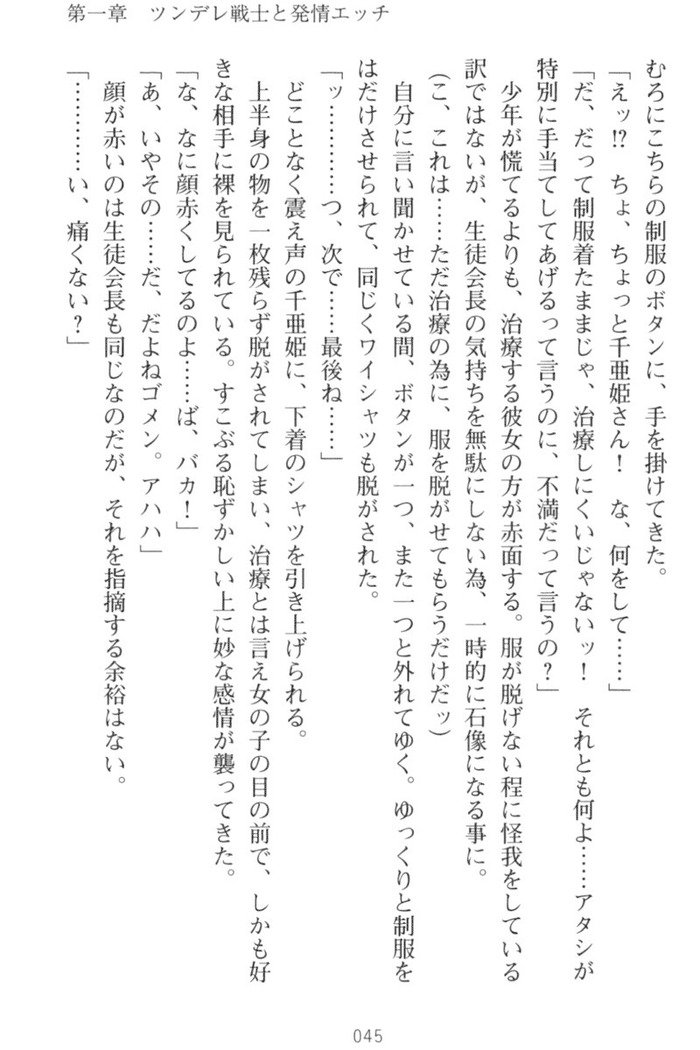 第一章　ツンデレ戦士と発情エッチ
むろにこちらの制服のボタンに、手を掛けてきた。
「えッ!?　ちょ、ちょっと千亜姫さん！　な、何をして……」
「だ、だって制服着たままじゃ、治療しにくいじゃないッ！　それとも何よ……アタシが
特別に手当てしてあげるって言うのに、不満だって言うの？」
少年が慌てるよりも、治療する彼女の方が赤面する。服が脱げない程に怪我をしている
訳ではないが、生徒会長の気持ちを無駄にしない為、一時的に石像になる事に。
（こ、これは……ただ治療の為に、服を脱がせてもらうだけだッ）
自分に言い聞かせている間、ボタンが一つ、また一つと外れてゆく。ゆっくりと制服を
はだけさせられて、同じくワイシャツも脱がされた。
「ッ…………つ、次で……最後ね……」
どことなく震え声の千亜姫に、下着のシャツを引き上げられる。
上半身の物を一枚残らず脱がされてしまい、治療とは言え女の子の目の前で、しかも好
きな相手に裸を見られている。すこぶる恥ずかしい上に妙な感情が襲ってきた。
「な、なに顔赤くしてるのよ……ば、バカ！」
「あ、いやその……だ、だよねゴメン。アハハ」
顔が赤いのは生徒会長も同じなのだが、それを指摘する余裕はない。
「…………い、痛くない？」
045